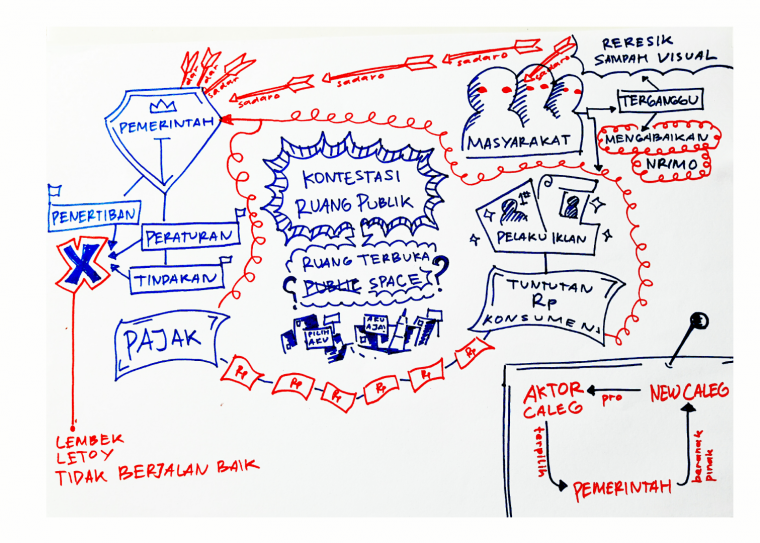 RERESIK
SAMPAH VISUAL
sadar
sadar
sadar
sadaro
sadaro
sadaro
sadaro
sadaro
TERGANGGU
MENGABAIKAN
NRIMO
PEMERINTAH
MASYARAKAT
KONTESTASI
RUANG PUBLIK
PENERTIBAN
PERATURAN
TINDAKAN
X
RUANG TERBUKA
PUBLIC SPACE
? ?
PILIH
AKU
AKU
AJA!
1st
PELAKU IKLAN
TUNTUTAN
Rp
KONSUMEN
PAJAK
Rp
Rp
Rp
Rp
Rp
Rp
LEMBEK
LETOY
TIDAK BERJALAN BAIK
AKTOR
CALEG
pro
NEW CALEG
terpilih
PEMERINTAH
beranak
pinak